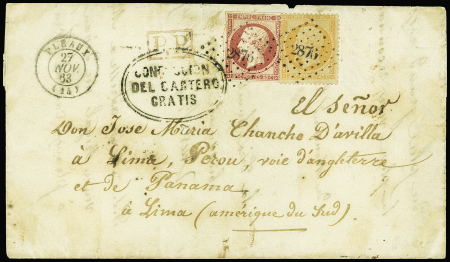 PLEAUX
27
NOV.
63
(14)
P.P.
EMPIRE FRANC
2875
2875
CONDUCCION
DEL CARTERO
GRATIS
El Señor
Don Jose Maria Chanche D'avilla
à Lima, Pérou, voie d'angleterre
et de Panama
à Lima (amérique du Sud)